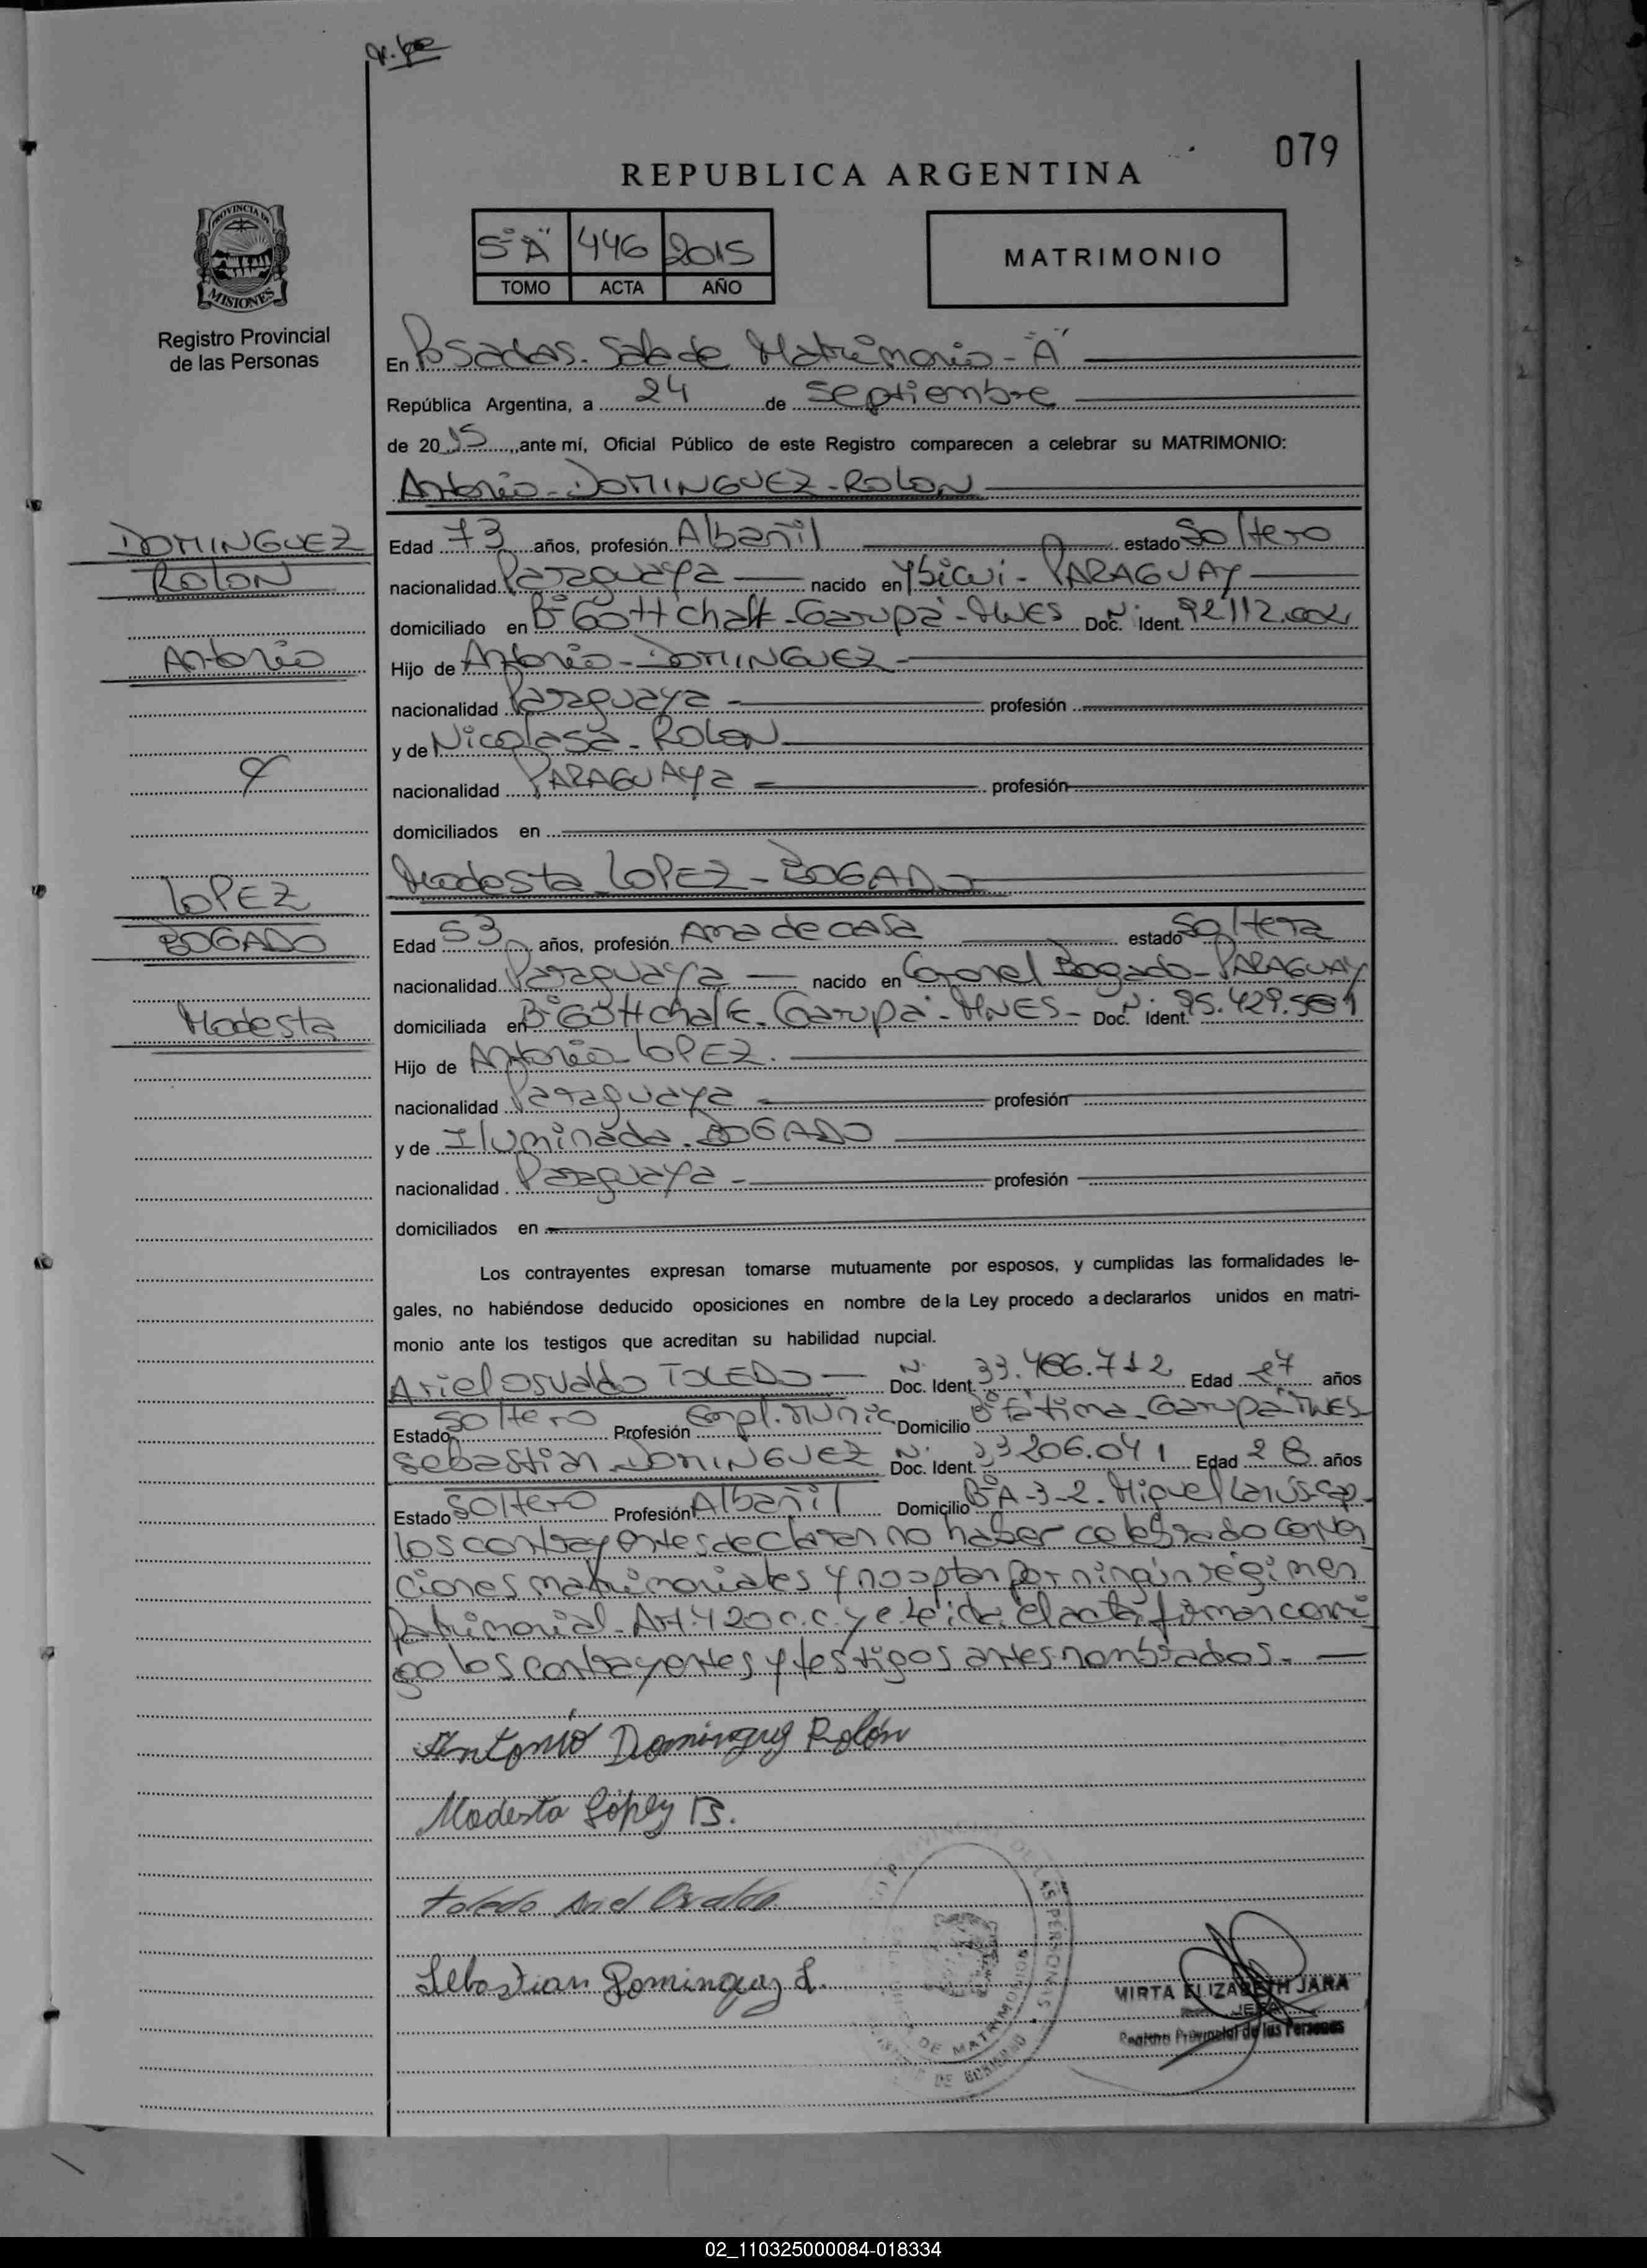 079
REPUBLICA ARGENTINA
5º "A" 446 2015
TOMO ACTA AÑO
MATRIMONIO
PROVINCIA DE
MISIONES
Registro Provincial
de las Personas
En Posadas. Sala de Matrimonio - "A"
República Argentina, a 24 de Septiembre
de 2015, ante mí, Oficial Público de este Registro comparecen a celebrar su MATRIMONIO:
Antonio - DOMINGUEZ - ROLON
DOMINGUEZ
ROLON
Antonio
Edad 73 años, profesión Albañil estado Soltero
nacionalidad Paraguaya nacido en Ybicui - PARAGUAY
domiciliado en Bº Gottchalk - Garupá - MNES Doc. Nº Ident. 92.112.002
Hijo de Antonio - DOMINGUEZ -
nacionalidad Paraguaya - profesión
y de Nicolasa - ROLON
nacionalidad PARAGUAYa profesión
domiciliados en
Modesta LOPEZ - BOGADO
LOPEZ
BOGADO
Modesta
Edad 53 años, profesión Ama de casa estado Soltera
nacionalidad Paraguaya nacido en Coronel Bogado - PARAGUAY
domiciliada en Bº Gottchalk - Garupá - MNES - Doc. Nº Ident. 95.429.501
Hijo de Antonio LOPEZ.
nacionalidad Paraguaya profesión
y de Iluminada - BOGADO
nacionalidad Paraguaya - profesión
domiciliados en
Los contrayentes expresan tomarse mutuamente por esposos, y cumplidas las formalidades le-
gales, no habiéndose deducido oposiciones en nombre de la Ley procedo a declararlos unidos en matri-
monio ante los testigos que acreditan su habilidad nupcial.
Ariel Osvaldo TOLEDO - Nº Doc. Ident. 33.486.712 Edad 27 años
Estado Soltero Profesión Empl. Munic Domicilio Bº Fátima - Garupá MNES
Sebastian DOMINGUEZ Nº Doc. Ident. 33206.041 Edad 28 años
Estado Soltero Profesión Albañil Domicilio Bº A-3-2. Miguel Lanús -
los contrayentes declaran no haber celebrado conven
ciones matrimoniales y no optan por ningún régimen
Patrimonial - Art. 420 c.c. y c. Leída el acta, firman conmi
go los contrayentes y testigos antes nombrados. -
Antonio Dominguez Rolón
Modesta López B.
Toledo Ariel Osvaldo
Sebastian Dominguez L.
MIRTA ELIZABETH JARA
JEFA
Registro Provincial de las Personas
02_110325000084-018334